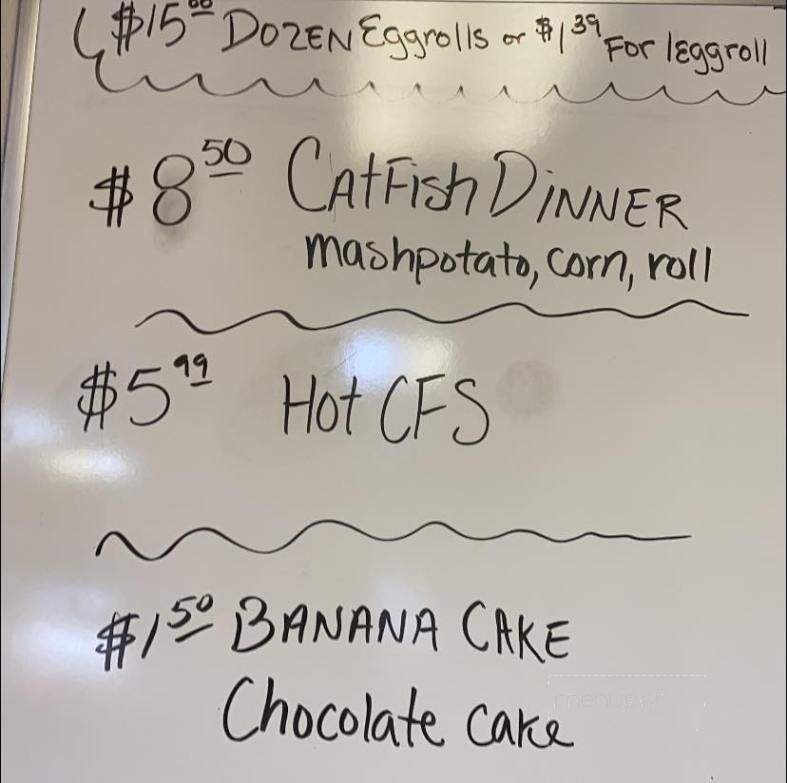 $15.00 DOZEN Eggrolls or $1.39 For 1eggroll
$8.50 CatFish DiNNER
mashpotato, corn, roll
$5.99 Hot CFS
$1.50 BANANA CAKE
Chocolate cake